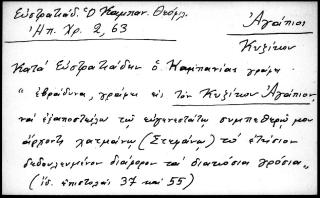 Εὐστρατιάδ. Ὁ Καμπαν. Θεόφιλ.
Ἠπ. Χρ. 2, 63
Ἀγάπιος
Κυζίκου
Κατά Εὐστρατιάδην ὁ Καμπανίας γράφει
"ἐβράδυνα, γράφει εἰς τὸν Κυζίκου Ἀγάπιον,
νά ἐξαποστείλω τῷ εὐγενεστάτῳ συμπεθερῷ μου
ἄρχοντι χατμάνῳ (Στεμάνῳ) τό ἐτήσιον
δεδουλευμένον διάφορον τά διακόσια γρόσια"
(ἰδ. ἐπιστολαί 37 καί 55)